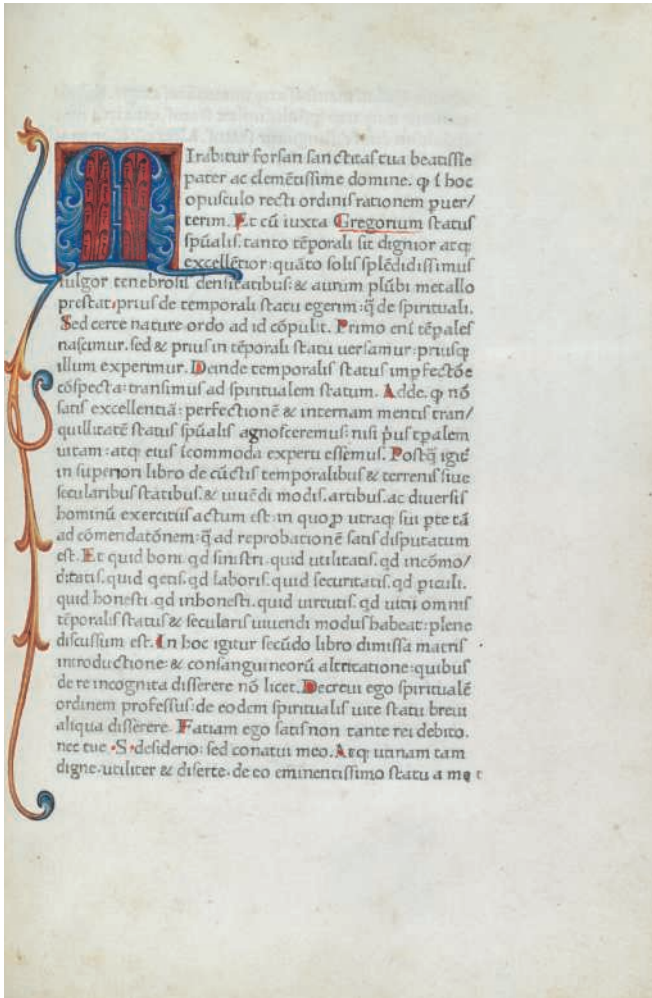 MIrabitur forsan sanctitas tua beatissie
pater ac clemētissime domine. ꝙ ī hoc
opusculo recti ordinis rationem puer/
terim. Et cū iuxta Gregorium status
spūalis. tanto tēporali sit dignior atqꝫ
excellētior: quāto solis splēdidissimus
fulgor tenebrosis densitatibus: & aurum plūbi metallo
prestat: prius de temporali statu egerim: ꝗ̄ de spirituali.
Sed certe nature ordo ad id cōpulit. Primo enī tēpales
nascimur. sed & prius in tēporali statu uersamur: priusqꝫ
illum experimur. Deinde temporalis status impfectōe
cōspecta: transimus ad spiritualem statum. Adde. ꝙ nō
satis excellentiā: perfectionē & internam mentis tran/
quillitatē status spūalis agnosceremus: nisi pͥus tꝑalem
uitam: atqꝫ eius īcommoda experti essemus. Postꝗ̄ igit̄
in superiori libro de cūctis temporalibus & terrenis siue
secularibus statibus. & uiuēdi modis. artibus. ac diuersis
hominū exercitiis actum est: in quo ꝓ utraqꝫ sui ꝑte tā
ad cōmendatōnem: ꝗ̄ ad reprobationē satis disputatum
est. Et quid boni. qd sinistri. quid utilitatis. qd incōmo/
ditatis. quid qetis. qd laboris. quid securitatis. qd ꝑiculi.
quid honesti. qd inhonesti. quid uirtutis. qd uitii omnis
tēporalis status & secularis uiuendi modus habeat: plene
discussum est. In hoc igitur secūdo libro dimissa matris
introductione: & consanguineorū altricatione: quibus
de re incognita disserere nō licet. Decreui ego spiritualē
ordinem professus: de eodem spiritualis uite statu breui
aliqua disserere. Fatiam ego satis non tante rei debito.
nec tue .S. desiderio: sed conatui meo. Atqꝫ utinam tam
digne. utiliter & diserte. de eo eminentissimo statu a me t